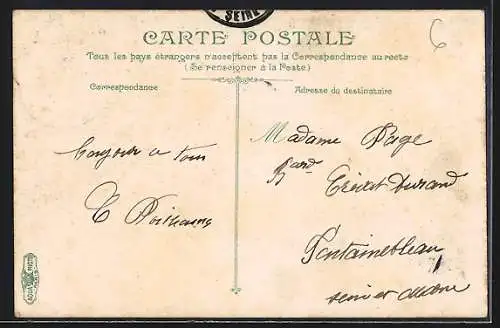 SEINE
CARTE POSTALE
Tous les pays étrangers n'acceptent pas la Correspondance au recto
(Se renseigner à la Poste)
Correspondance
Adresse du destinataire
6
Madame Page
Bonjour a tous
Bard
E
Fontainebleau
seine et marne